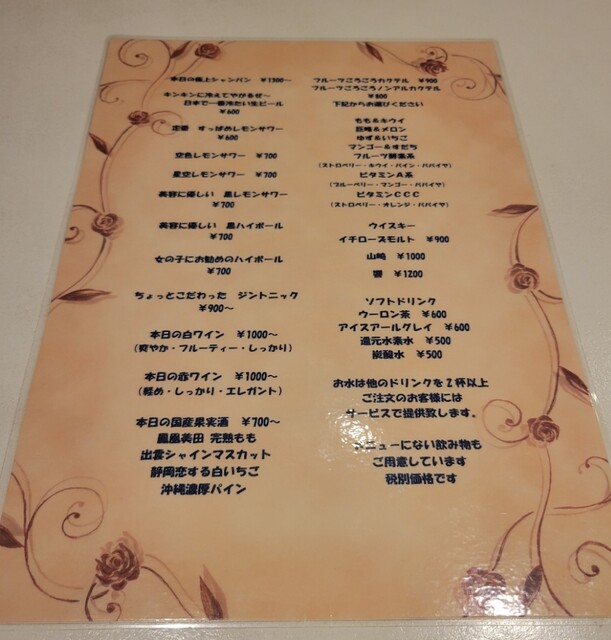 本日の極上シャンパン ￥1500～
キンキンに冷えてやがるぜ～
日本で一番冷たい生ビール
￥600
定番 すっぱめレモンサワー
￥600
空色レモンサワー ￥700
星空レモンサワー ￥700
美容に優しい 黒レモンサワー
￥700
美容に優しい 黒ハイボール
￥700
女の子にお勧めのハイボール
￥700
ちょっとこだわった ジントニック
￥900～
本日の白ワイン ￥1000～
（爽やか・フルーティー・しっかり）
本日の赤ワイン ￥1000～
（軽め・しっかり・エレガント）
本日の国産果実酒 ￥700～
鳳凰美田 完熟もも
出雲シャインマスカット
静岡恋する白いちご
沖縄濃厚パイン
フルーツごろごろカクテル ￥900
フルーツごろごろノンアルカクテル
￥800
下記からお選びください
もも&キウイ
巨峰&メロン
ゆず&いちご
マンゴー&すだち
フルーツ酵素系
（ストロベリー・キウイ・パイン・パパイヤ）
ビタミンA系
（ブルーベリー・マンゴー・パパイヤ）
ビタミンCCC
（ストロベリー・オレンジ・パパイヤ）
ウイスキー
イチローズモルト ￥900
山崎 ￥1000
響 ￥1200
ソフトドリンク
ウーロン茶 ￥600
アイスアールグレイ ￥600
還元水素水 ￥500
炭酸水 ￥500
お水は他のドリンクを2杯以上
ご注文のお客様には
サービスで提供致します。
メニューにない飲み物も
ご用意しています
税別価格です